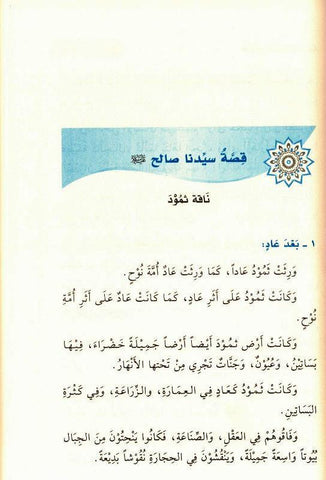 قِصَّةُ سيّدنا صالح ﷺ
نَاقة ثمُوْدَ
١ ـ بَعْدَ عَادٍ:
وَرِثَتْ ثَمُوْدُ عَاداً، كَمَا وَرِثَتْ عَادٌ أُمَّةَ نُوْحٍ.
وَكَانَتْ ثَمُوْدُ عَلَى أَثَرِ عَادٍ، كَمَا كَانَتْ عَادٌ عَلَى أَثَرِ أُمَّةِ
نُوْحٍ.
وَكَانَتْ أَرْضُ ثَمُوْدَ أَيْضاً أَرْضاً جَمِيْلَةً خَضْرَاءَ، فِيْهَا
بَسَاتِيْنُ، وَعُيُوْنٌ، وَجَنَّاتٌ تَجْرِي مِنْ تَحْتِهَا الأَنْهَارُ.
وَكَانَتْ ثَمُوْدُ كَعَادٍ فِي العِمَارَةِ، والزِّرَاعَةِ، وفِي كَثْرَةِ
البَسَاتِينِ.
وَفَاقُوهُمْ فِي العَقْلِ، وَالصِّنَاعَةِ، فَكَانُوا يَنْحِتُوْنَ مِنَ الجِبَالِ
بُيُوْتاً وَاسِعَةً جَمِيْلَةً، وَيَنْقُشُوْنَ فِي الحِجَارَةِ نُقُوْشاً بَدِيْعَةً.